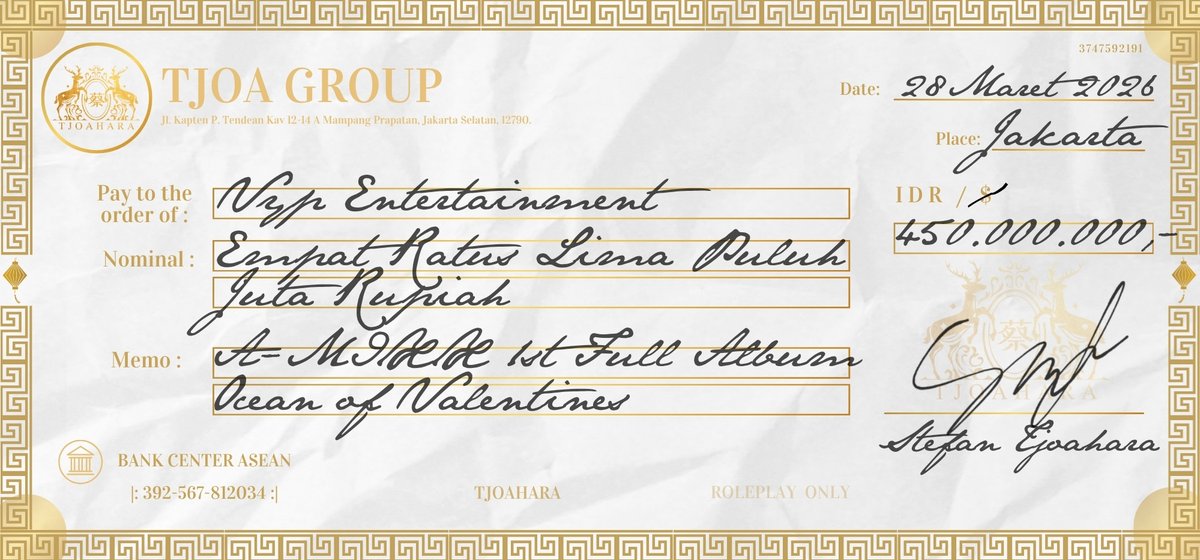 3747592191
TJOA GROUP
Jl. Kapten P. Tendean Kav 12-14 A Mampang Prapatan, Jakarta Selatan, 12790.
蔡
TJOAHARA
Date: 28 Maret 2026
Place: Jakarta
Pay to the
order of : Vyp Entertainment
IDR / $
450.000.000,-
Nominal : Empat Ratus Lima Puluh
Juta Rupiah
Memo : A-MIKK 1st Full Album
Ocean of Valentines
蔡
TJOAHARA
Stefan Tjoahara
BANK CENTER ASEAN
|: 392-567-812034 :|
TJOAHARA
ROLEPLAY ONLY